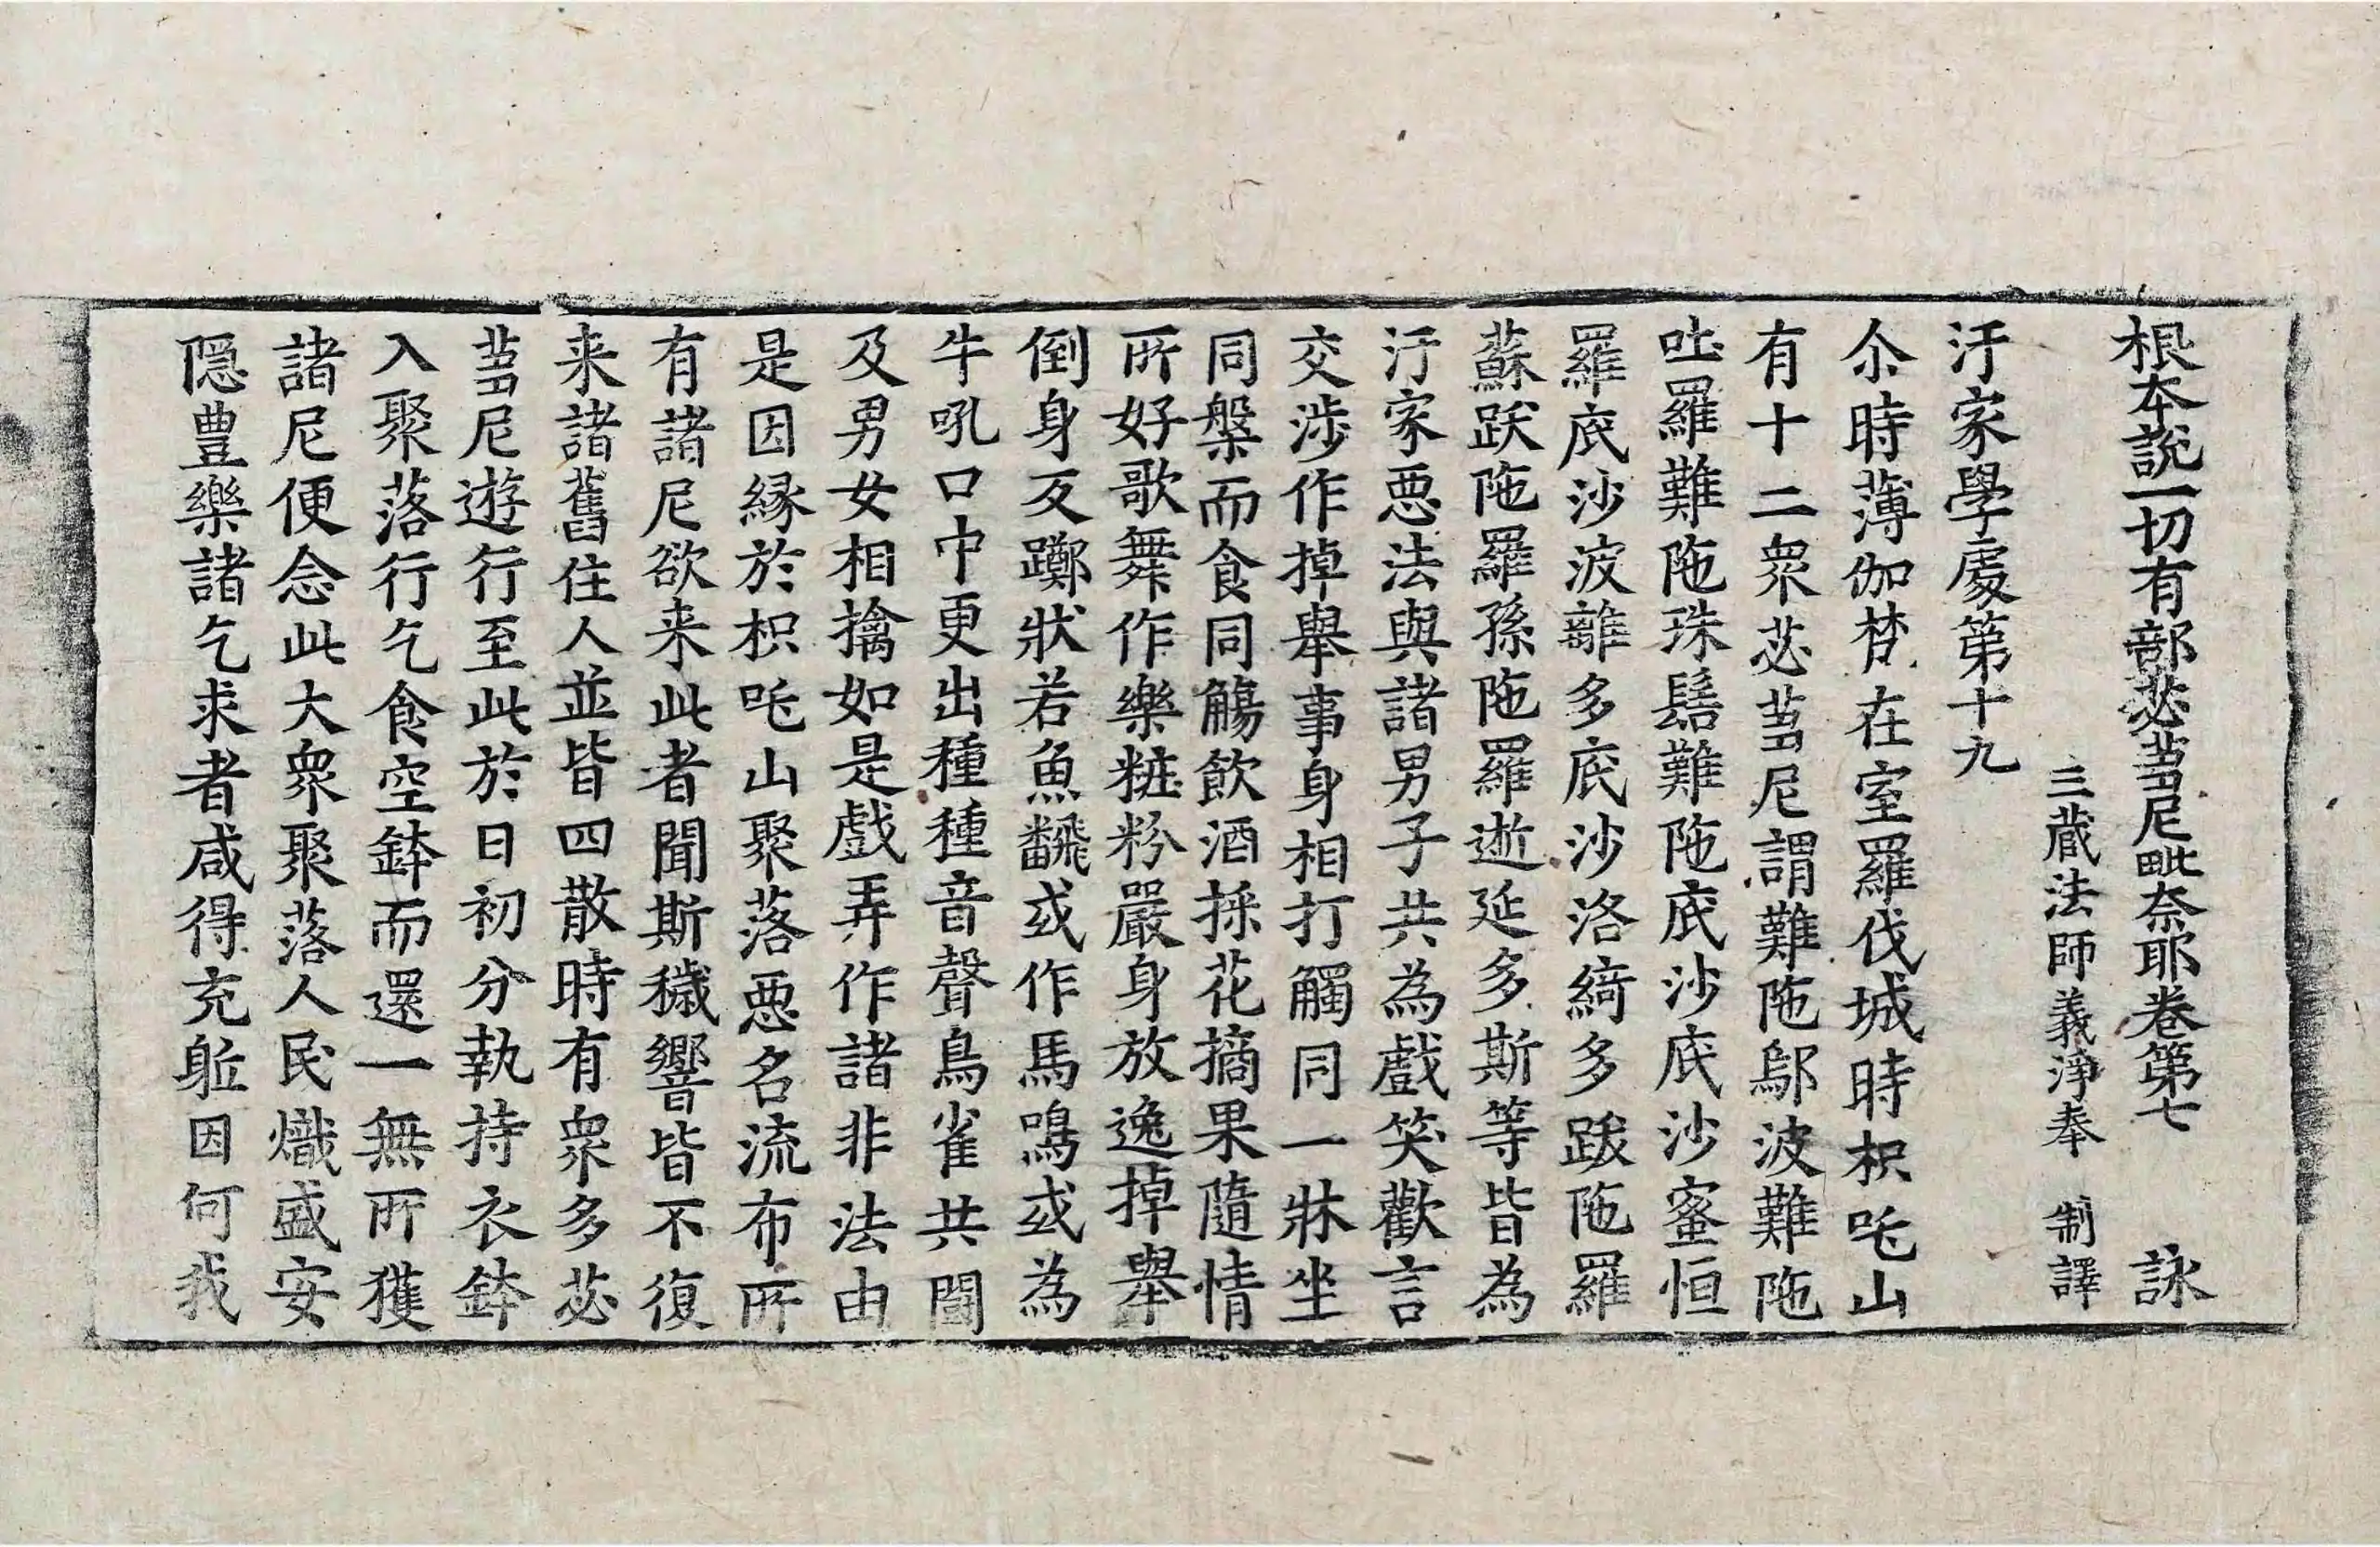 根本說一切有部苾芻尼毗奈耶卷第七 詠
三藏法師義淨奉 制譯
汙家學處第十九
尒時薄伽梵在室羅伐城時枳吒山
有十二衆苾芻尼謂難陁鄔波難陁
吐羅難陁珠髻難陁底沙底沙蜜恒
羅底沙波離多底沙洛綺多跋陁羅
蘇跋陁羅孫陁羅逝延多斯等皆為
汙家惡法與諸男子共為戲笑歡言
交涉作掉舉事身相打觸同一牀坐
同槃而食同觴飲酒採花摘果隨情
所好歌舞作樂粧粉嚴身放逸掉舉
倒身反躑狀若魚飜或作馬鳴或為
牛吼口中更出種種音聲鳥雀共鬪
及男女相擒如是戲弄作諸非法由
是因緣於枳吒山聚落惡名流布所
有諸尼欲来此者聞斯穢響皆不復
来諸舊住人並皆四散時有衆多苾
芻尼遊行至此於日初分執持衣鉢
入聚落行乞食空鉢而還一無所獲
諸尼便念此大衆聚落人民熾盛安
隱豊樂諸乞求者咸得充軀因何我